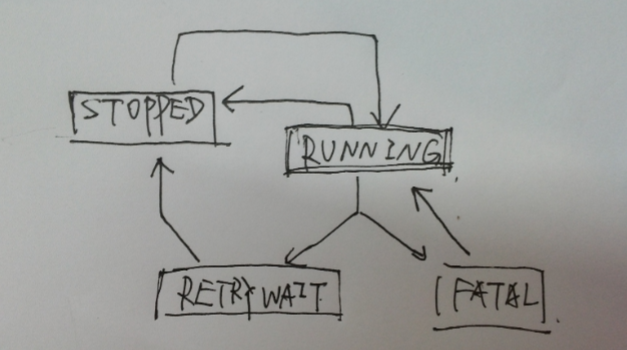 STOPPED
RUNNING
RETRYWAIT
FATAL